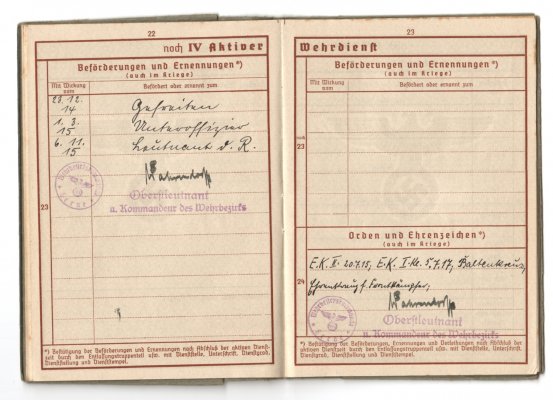 22
noch IV Aktiver
Beförderungen und Ernennungen*)
(auch im Kriege)
Mit Wirkung vom
Befördert oder ernannt zum
23. 12. 14 Gefreiten
1. 3. 15 Unteroffizier
6. 11. 15 Leutnant d. R.
Oberstleutnant
u. Kommandeur des Wehrbezirks
23
*) Bestätigung der Beförderungen und Ernennungen nach Abschluß der aktiven Dienst-
zeit durch den Entlassungstruppenteil usw. mit Dienststelle, Unterschrift, Dienstgrad,
Dienststellung und Dienststempel.
23
Wehrdienst
Beförderungen und Ernennungen*)
(auch im Kriege)
Mit Wirkung vom
Befördert oder ernannt zum
noch
23
Orden und Ehrenzeichen*)
(auch im Kriege)
E.K. II. 20.7.15, E.K. I. Kl. 5.7.17, Baltenkreuz,
Ehrenkreuz f. Frontkämpfer,
24
Oberstleutnant
u. Kommandeur des Wehrbezirks
*) Bestätigung der Beförderungen, Ernennungen und Verleihungen nach Abschluß der
aktiven Dienstzeit durch den Entlassungstruppenteil usw. mit Dienststelle, Unterschrift,
Dienstgrad, Dienststellung und Dienststempel.